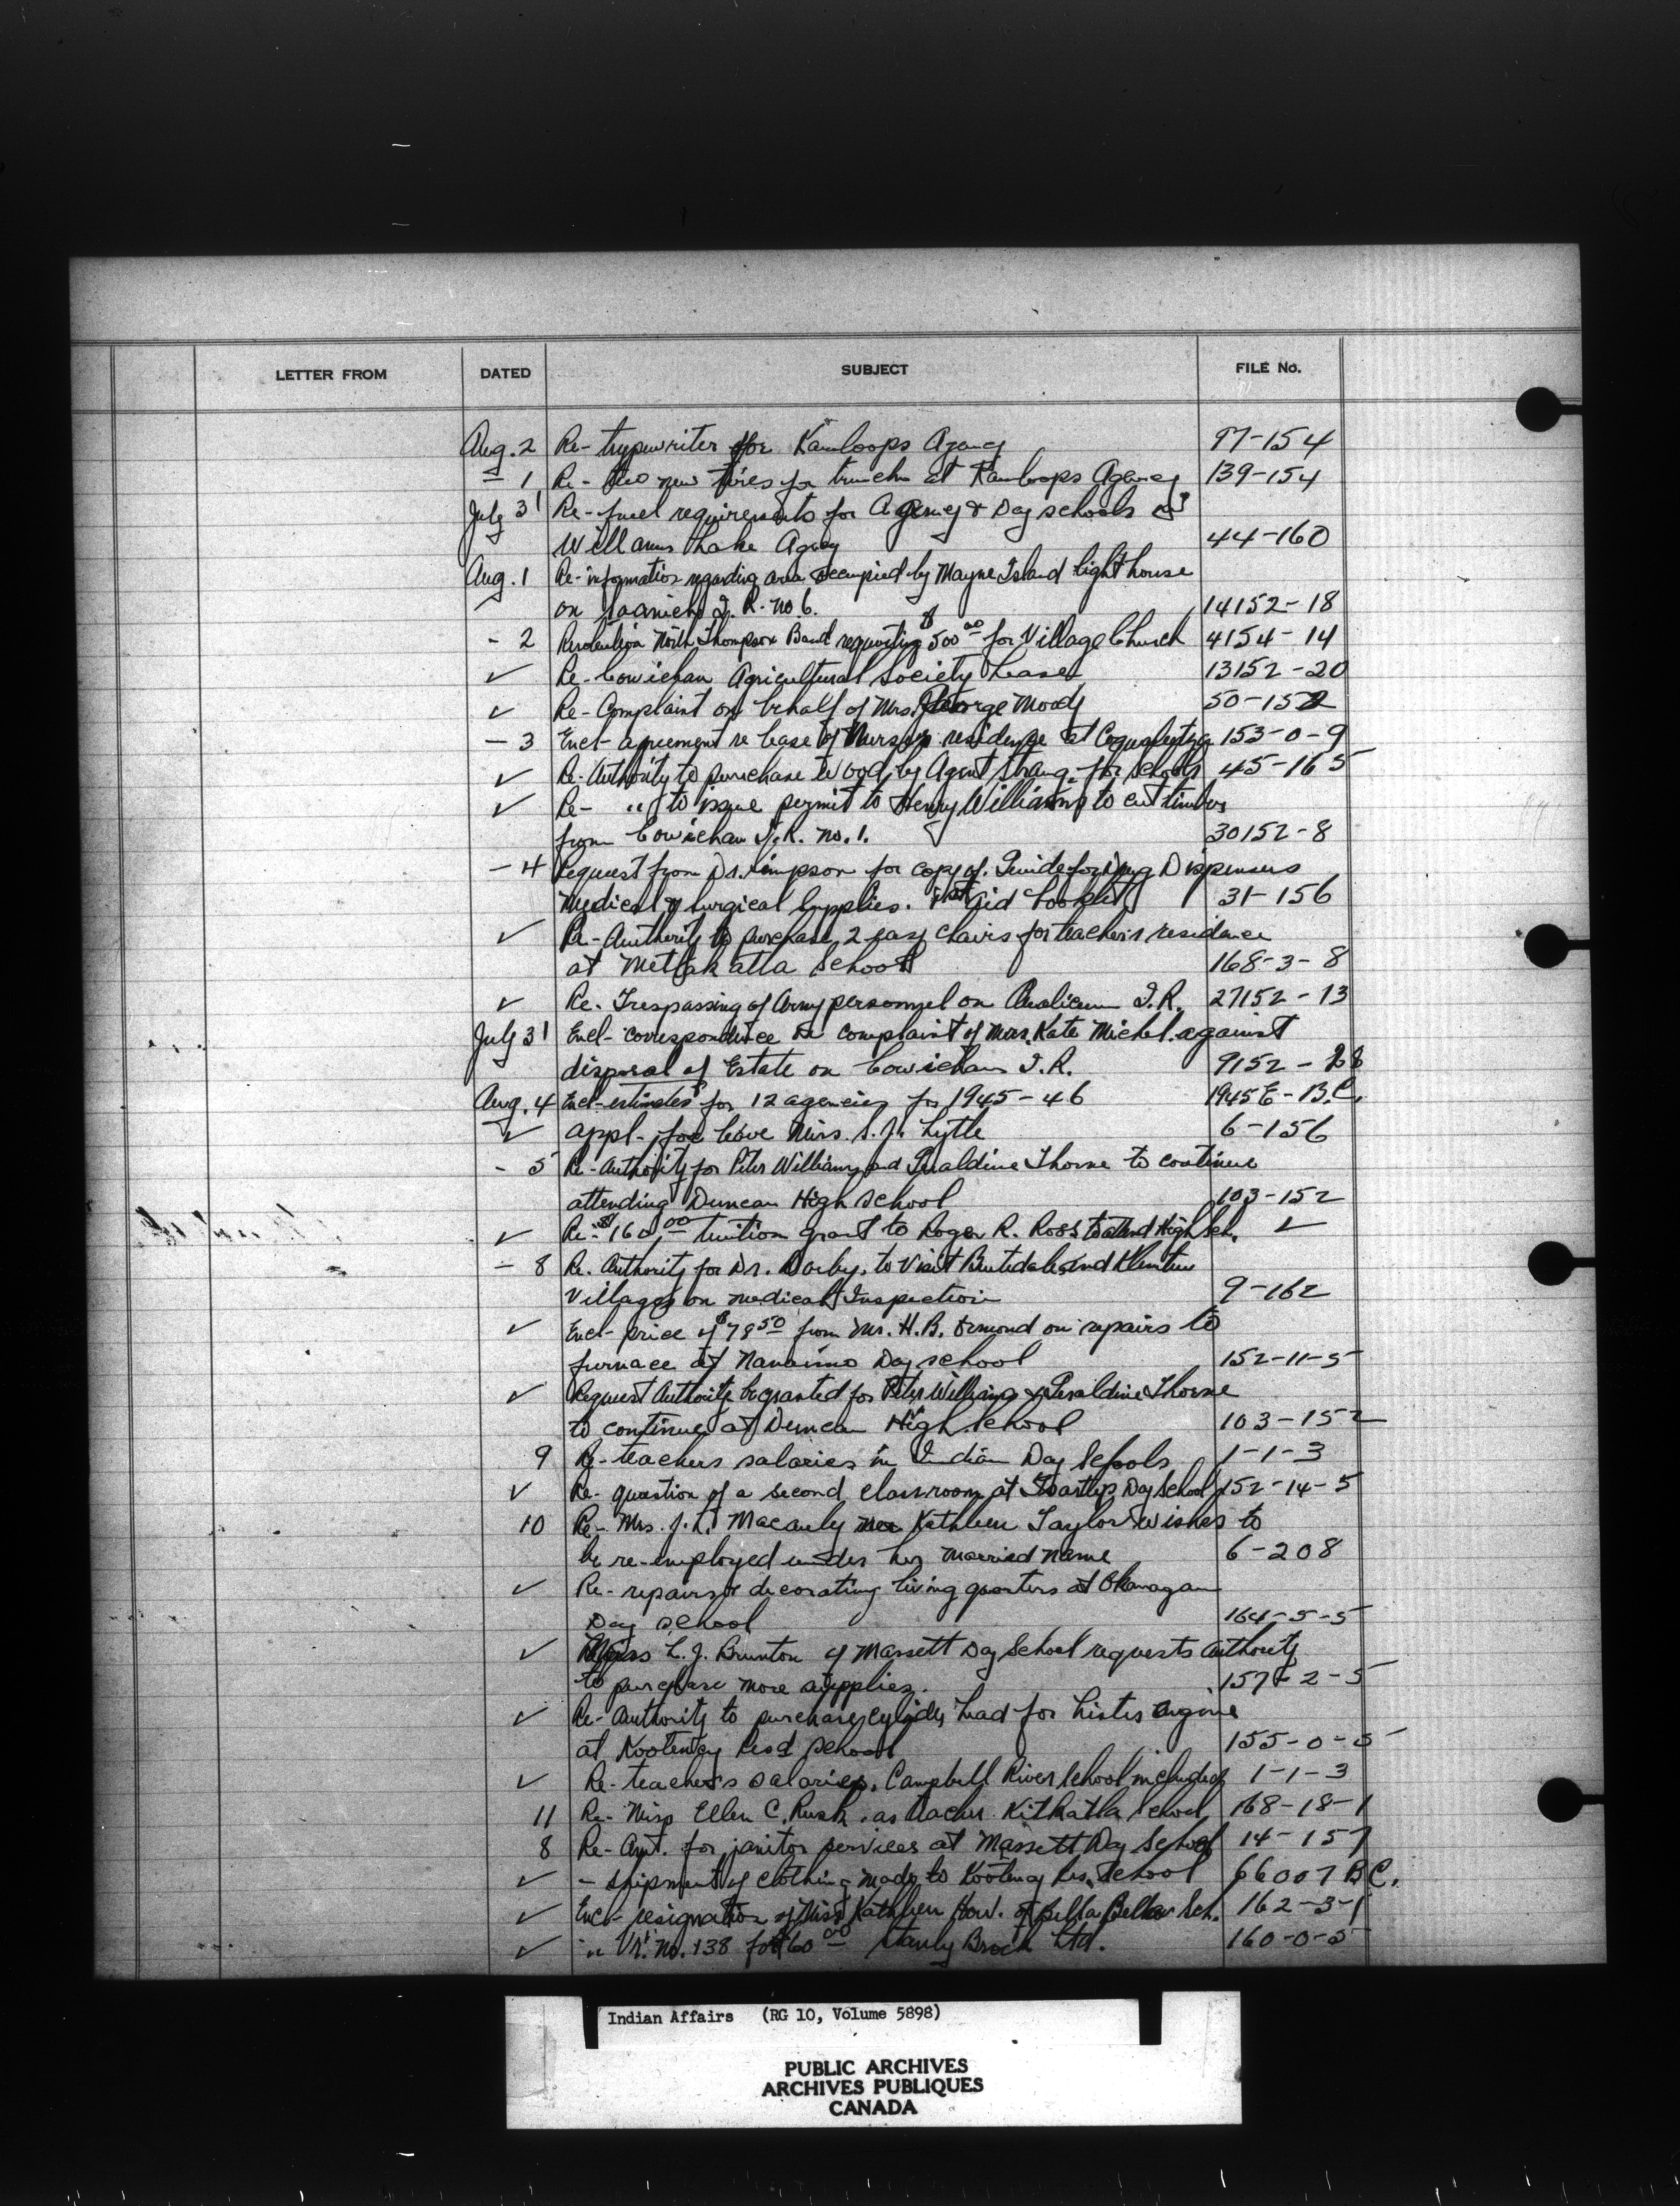 LETTER FROM DATED SUBJECT FILE No.
Aug. 2 Re- typewriter for Kamloops Agency 97-154
- 1 Re- two new tires for truck at Kamloops Agency 139-154
July 31 Re- fuel requirements for Agency & Day schools
Williams Lake Agency 44-160
Aug. 1 Re- information regarding area occupied by Mayne Island light house
✓ on Saanich I. R. No 6. 14152-18
- 2 Resolution North Thompson Band requesting $500.00 for Village Church 4154-14
✓ Re- Cowichan Agricultural Society Lease 13152-20
✓ Re- Complaint on behalf of Mrs. George Moody 50-152
- 3 Encl- agreement re lease of Nurses residence at Coqualeetza 153-0-9
✓ Re- Authority to purchase wood by Agent Strang for schools 45-165
✓ Re- " to issue permit to Henry Williams to cut timber
from Cowichan I.R. No. 1. 30152-8
- 4 Request from Dr. Simpson for copy of Guide for Drug Dispensers
Medical & Surgical Supplies. 1st Aid Booklet 31-156
✓ Re- Authority to purchase 2 easy chairs for teacher's residence
at Metlakatla School 168-3-8
✓ Re- Trespassing of Army personnel on Qualicum I.R. 27152-13
July 31 Encl- correspondence re complaint of Mrs. Kate Michel against
disposal of Estate on Cowichan I.R. 9152-28
Aug. 4 Encl- estimates for 12 agencies for 1945-46 1945E-B.C.
✓ appl- for leave Miss S. J. Lytle 6-156
- 5 Re- Authority for Peter Williams and Geraldine Thorne to continue
attending Duncan High School 103-152
✓ Re- $160.00 tuition grant to Roger R. Ross to attend High Sch. ✓
- 8 Re. Authority for Dr. Darby to visit Butedale and Klemtu
Villages on medical Inspection 9-162
✓ Encl- price of $78.50 from Mr. H.B. Ormond on repairs to
furnace at Nanaimo Day school 152-11-5
✓ Request Authority be granted for Peter Williams & Geraldine Thorne
to continue at Duncan High School 103-152
9 Re- teachers salaries in Indian Day Schools 1-1-3
✓ Re- question of a second classroom at Tsartlip Day School 152-14-5
10 Re- Mrs. J. L. Macauly nee Kathleen Taylor wishes to
be re-employed under her married name 6-208
✓ Re- repairs & decorating living quarters at Okanagan
Day school 164-5-5
✓ Miss L. J. Brunton of Massett Day School requests authority
to purchase more supplies. 157-2-5
✓ Re- Authority to purchase cylinder head for Lister engine
at Kootenay Resd School 155-0-5
✓ Re- teacher's salaries, Campbell River School included 1-1-3
11 Re- Miss Ellen C. Rush as teacher Kitkatla School 168-18-1
8 Re- Amt. for janitor services at Massett Day School 14-157
✓ - shipment of clothing made to Kootenay Res. School 66007 B.C.
✓ Encl- resignation of Miss Kathleen How. of Bella Bella Sch. 162-3-1
✓ " Vr. No. 138 for $60.00 Stanly Brock Ltd. 160-0-5
Indian Affairs (RG 10, Volume 5898)
PUBLIC ARCHIVES
ARCHIVES PUBLIQUES
CANADA